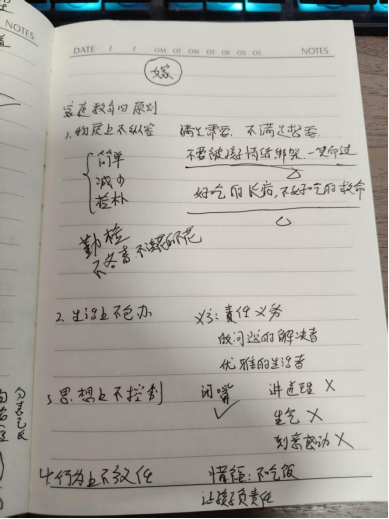 NOTES
DATE / / ○M ○T ○W ○T ○F ○S ○S NOTES
嫁
家庭教育四原则
1.物质上不纵容 确定需要，不满足想要
简单 不要被孩子情绪绑架，一笑而过
减少
俭朴 好吃的长癌，不好吃的救命
勤俭
不吝啬 不该花的不花
2.生活上不包办 义：责任义务
做问题的解决者
优雅的生活者
3.思想上不控制 闭嘴 讲道理 ×
✓ 生气 ×
刻意感动 ×
4.行为上不放任 情绪：不吃饭
让孩子负责任